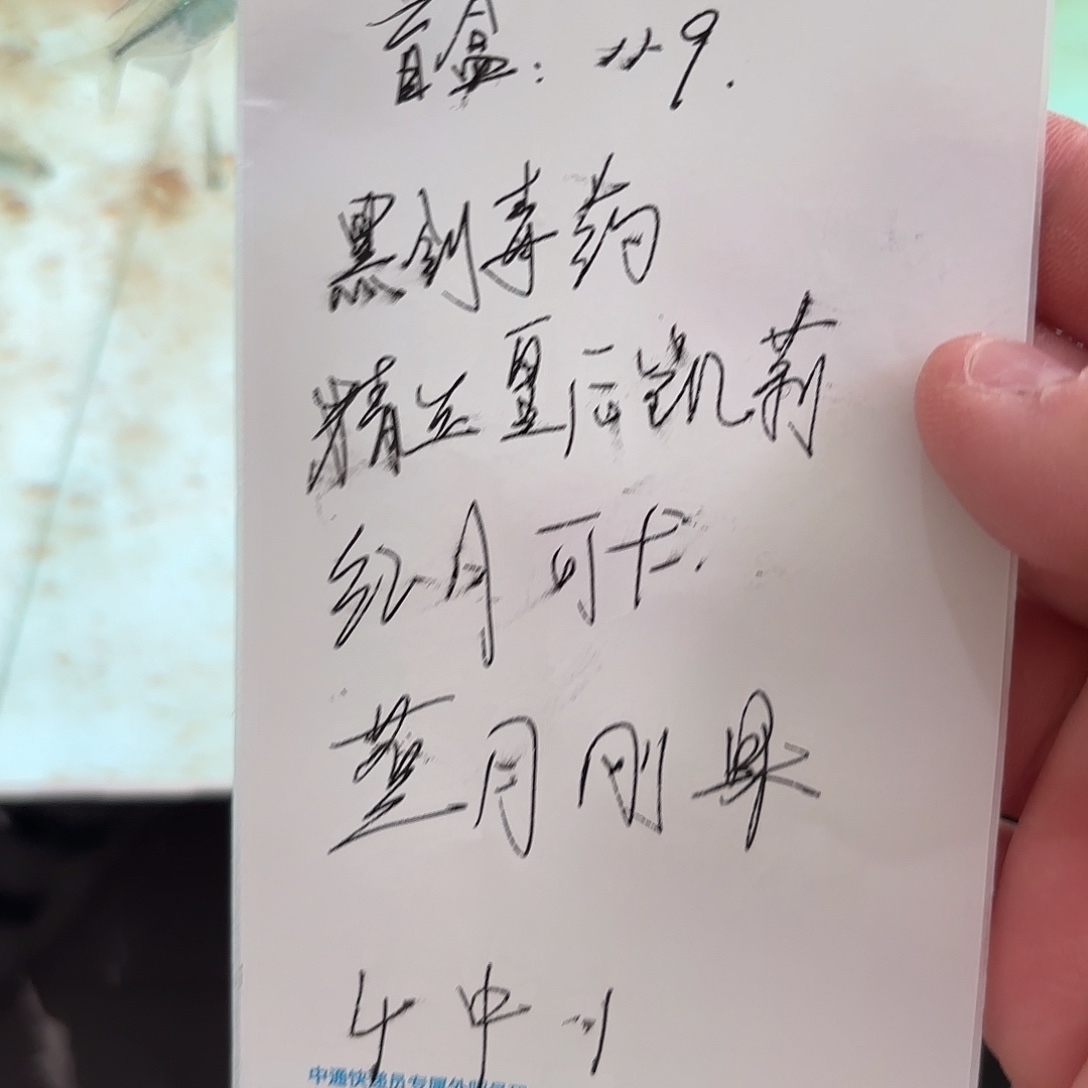 盲盒：229.
黑剑毒药
精选夏后凯莉
红月可卡.
蓝月刚果
4中1
中通快递员专属